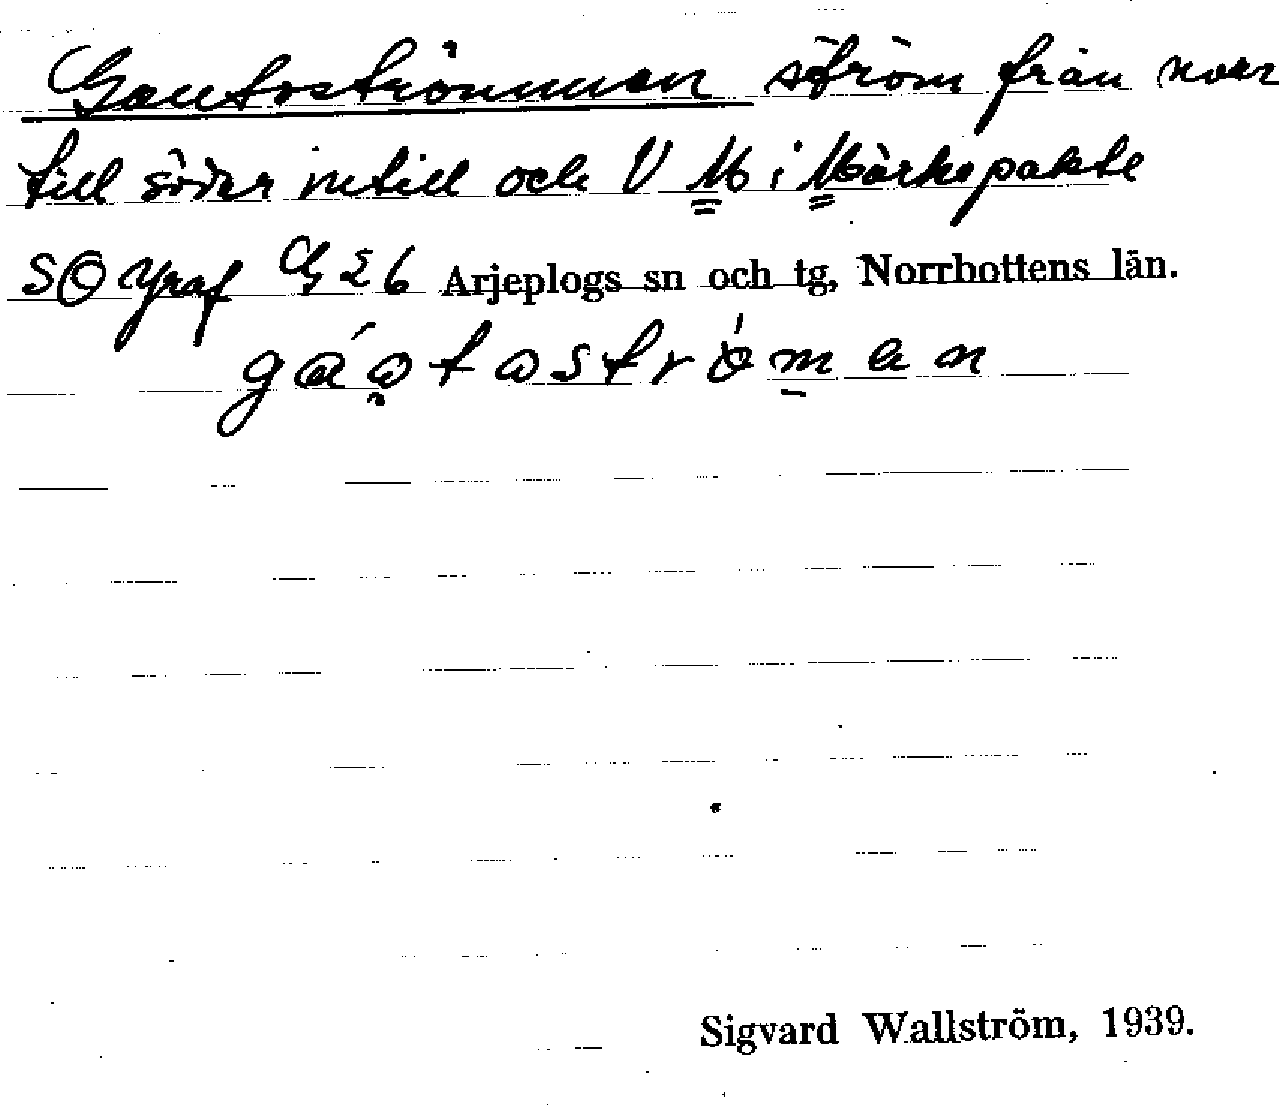 Gautostrømmen ström från norr
till söder intill och V M i Märkspakte
SO Graf G26 Arjeplogs sn och tg, Norrbottens län.
gáotostrómen
Sigvard Wallström, 1939.